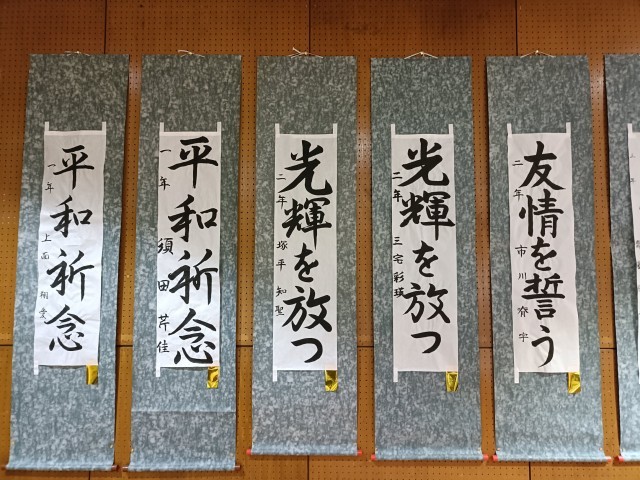 友情を誓う
二年 市川
光輝を放つ
二年 三宅彩瑛
光輝を放つ
二年 塚平 知聖
平和祈念
一年 須田芹佳
平和祈念
一年 上